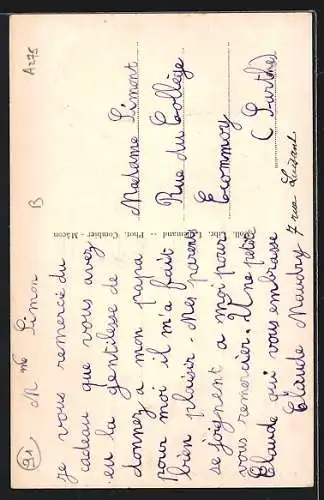 A275
B
91
Mme Simon
je vous remercie du
cadeau que vous avez
eu la gentilesse de
donnez a mon papa
pour moi il m'a fait
bien plaisir. Mes parents
se joignent a moi pour
vous remercier. Une petite
Claude qui vous embrasse
Claude Maudry 7 rue
Coll. Lib. - Phot. Combier - Mâcon
Madame Simont
Rue du Collège
Ecommoy
(Sarthe)